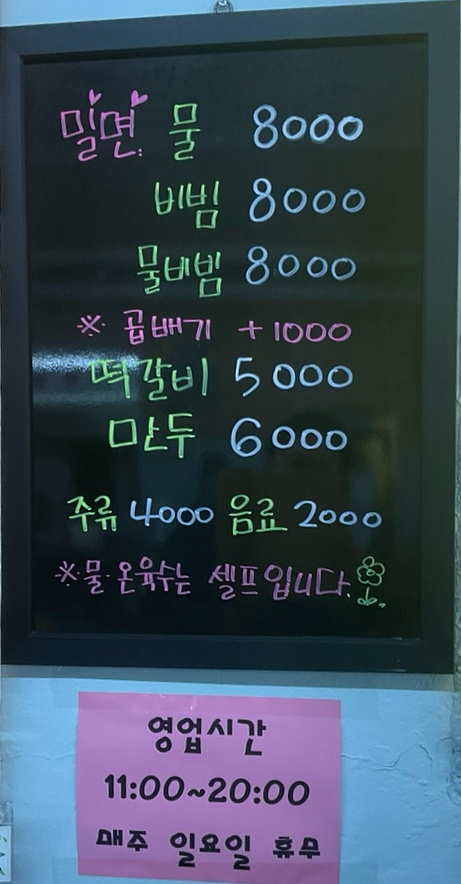 밀면 물 8000
비빔 8000
물비빔 8000
※ 곱배기 +1000
떡갈비 5000
만두 6000
주류 4000 음료 2000
※물·온육수는 셀프입니다.
영업시간
11:00~20:00
매주 일요일 휴무